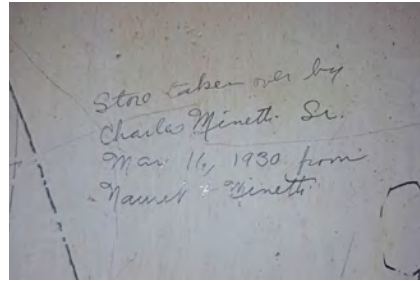 Store taken over by
Charles Minetti Sr.
Mar. 16, 1930 from
& Minetti